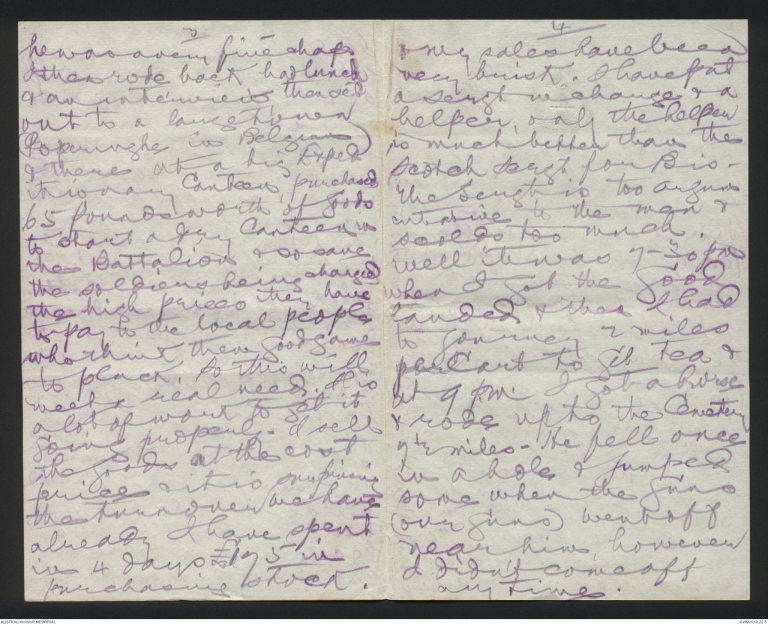 3
he was a very fine chap
I then rode back had lunch
& an interview then set
out to a large town
Poperinghe in Belgium
& there at a big Exped
itionary Canteen purchased
65 pounds worth of goods
to start a dry Canteen in
the Battalion & so save
the soldiers being charged
the high prices they have
to pay to the local people
who think them good game
to pluck. So this will
meet a real need. It is
a lot of work to get it
going properly. I sell
the goods at the cost
price & it is surprising
the turnover we have
already I have spent
in 4 days £195 in
purchasing stock.
4
& my sales have been
very brisk. I have put
a sergt in charge & a
helper, only the helper
is much better than the
Scotch sergt for Bis-
the Sergt is too argum
entative to the men &
scolds too much.
Well it was 7-30 pm
when I got the good
landed & then I had
to journey 2 miles
per cart to get tea &
at 9 pm I got a horse
& rode up to the Cemetery
7½ miles - He fell once
in a hole & jumped
some when the guns
(our guns) went off
near him, however
I didn't come off
any time.
AUSTRALIAN WAR MEMORIAL